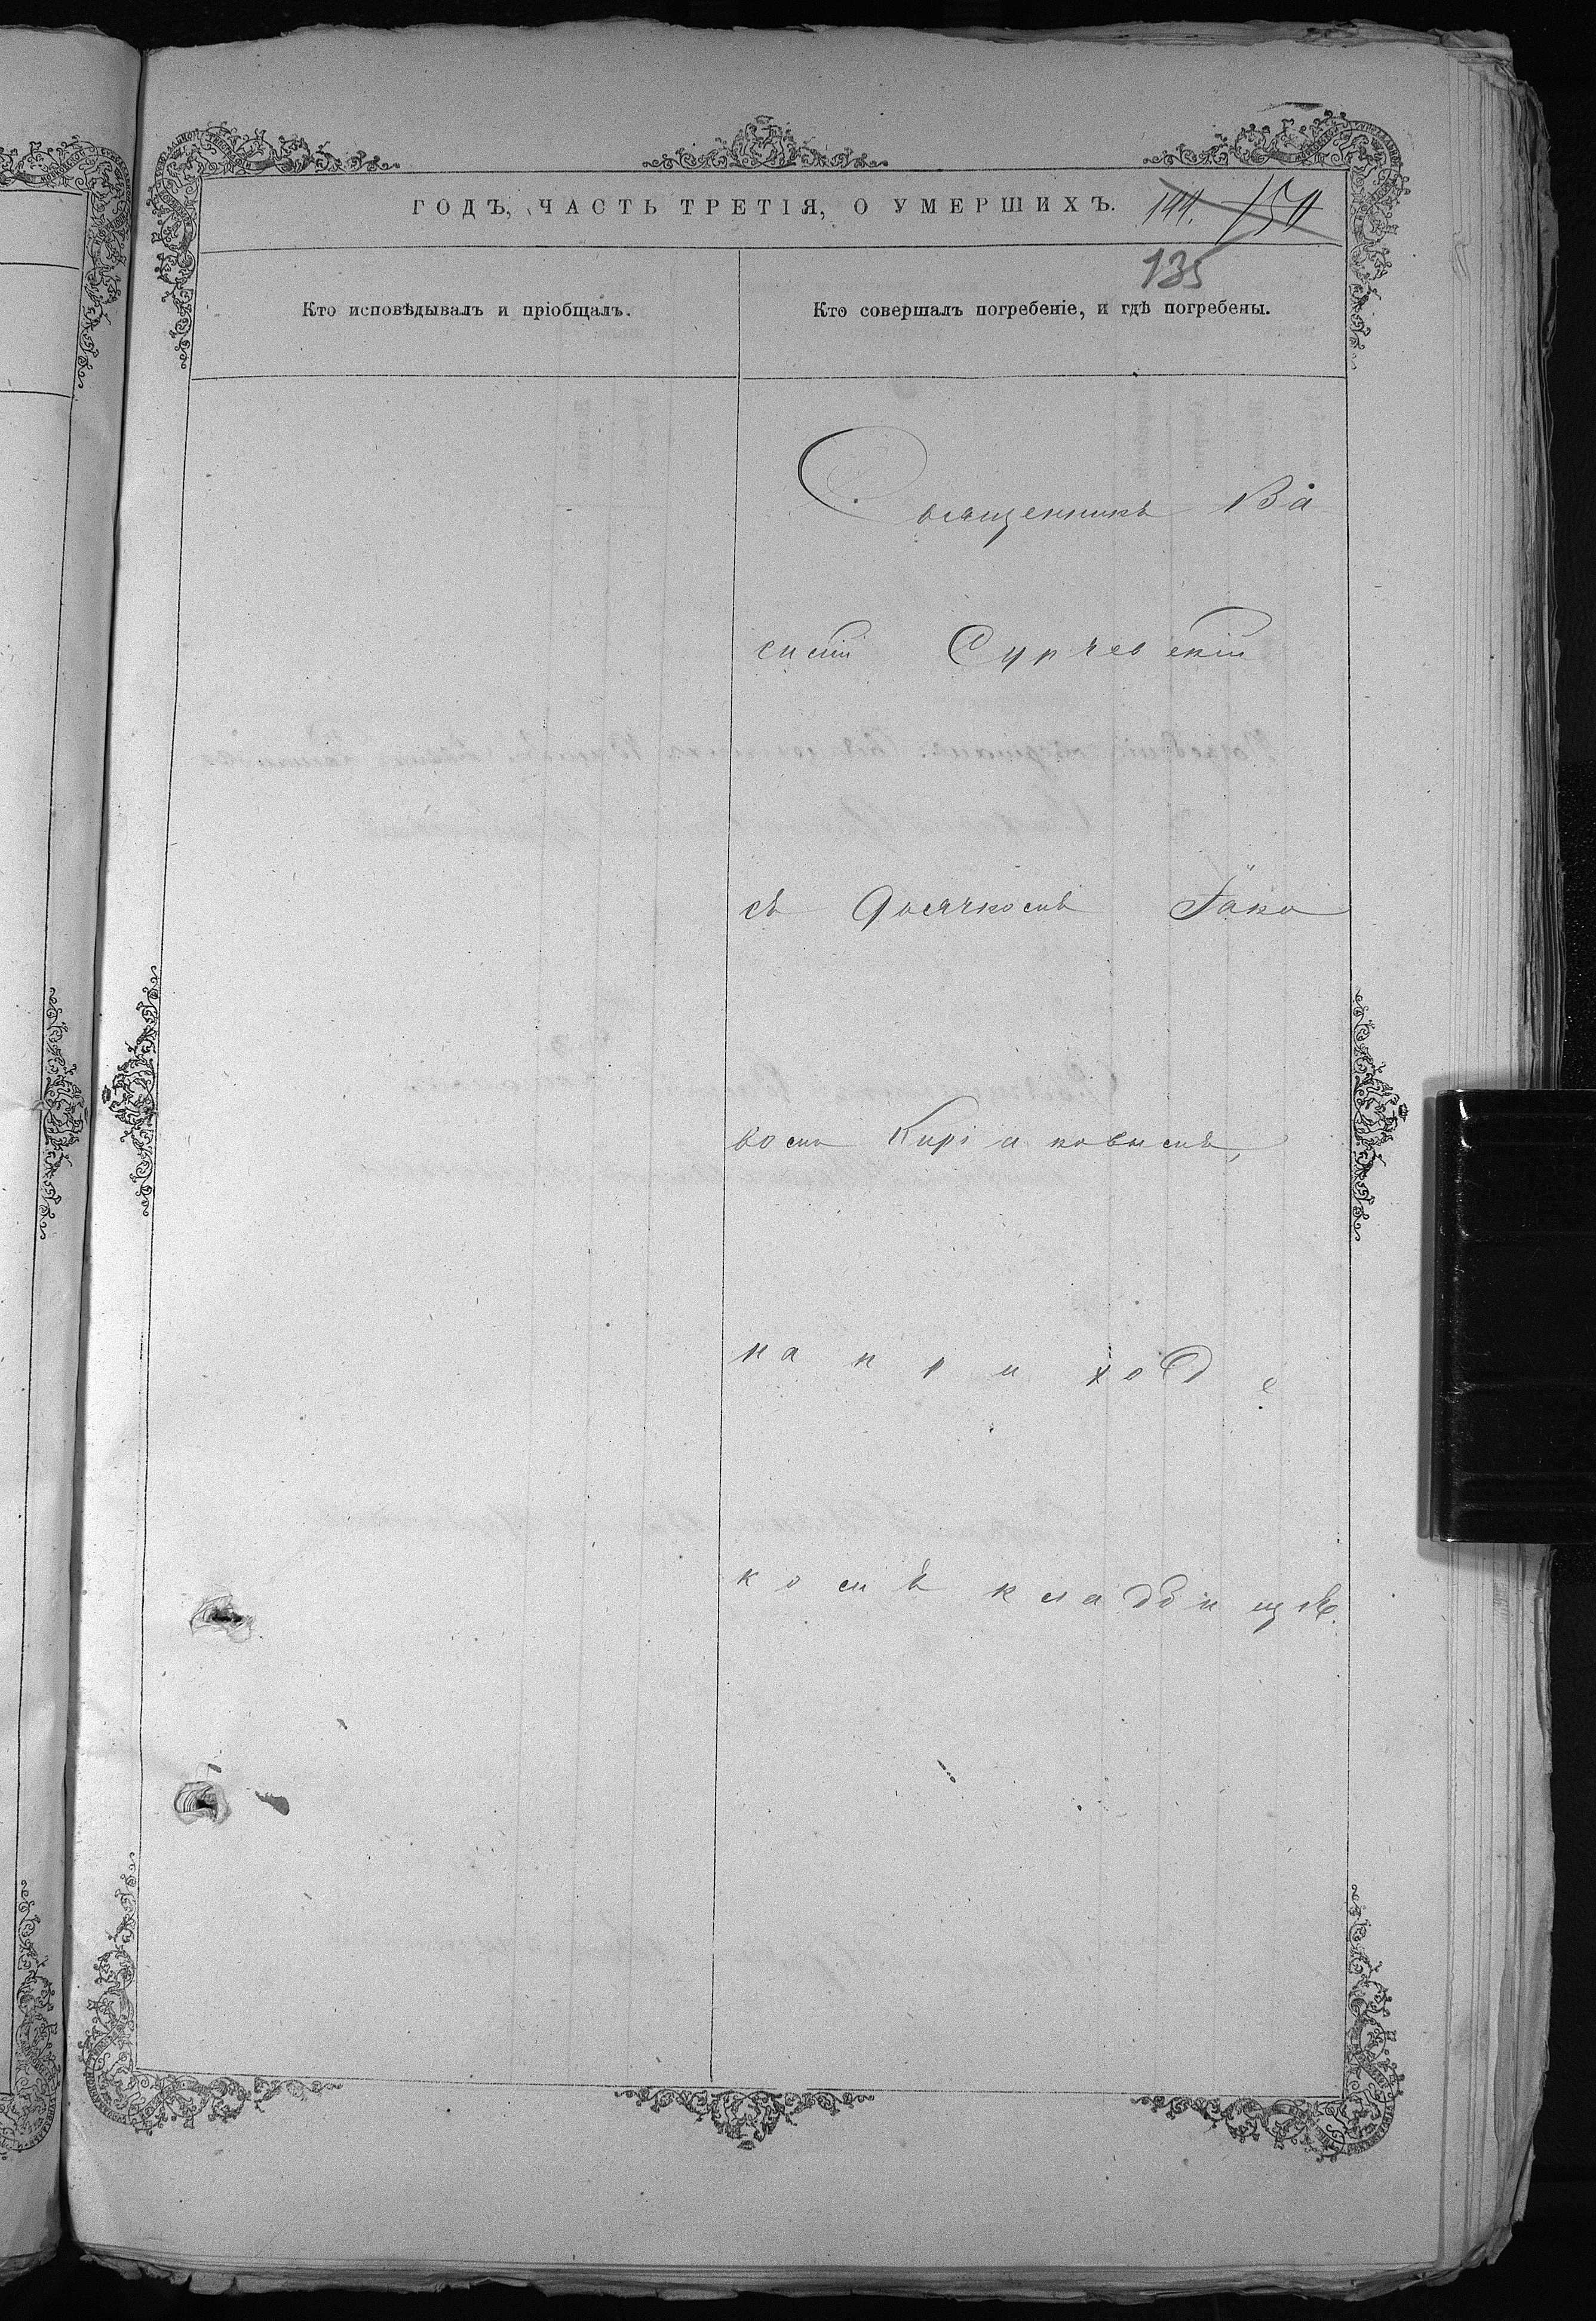 ГОДЪ, ЧАСТЬ ТРЕТІЯ, О УМЕРШИХЪ.
135
Кто исповѣдывалъ и пріобщалъ.
Кто совершалъ погребеніе, и гдѣ погребены.
Священникъ Ва
силій Сурчевскій
съ дьячкомъ Іако
вомъ Киріаковымъ,
на приход с
комъ кладбищѣ.